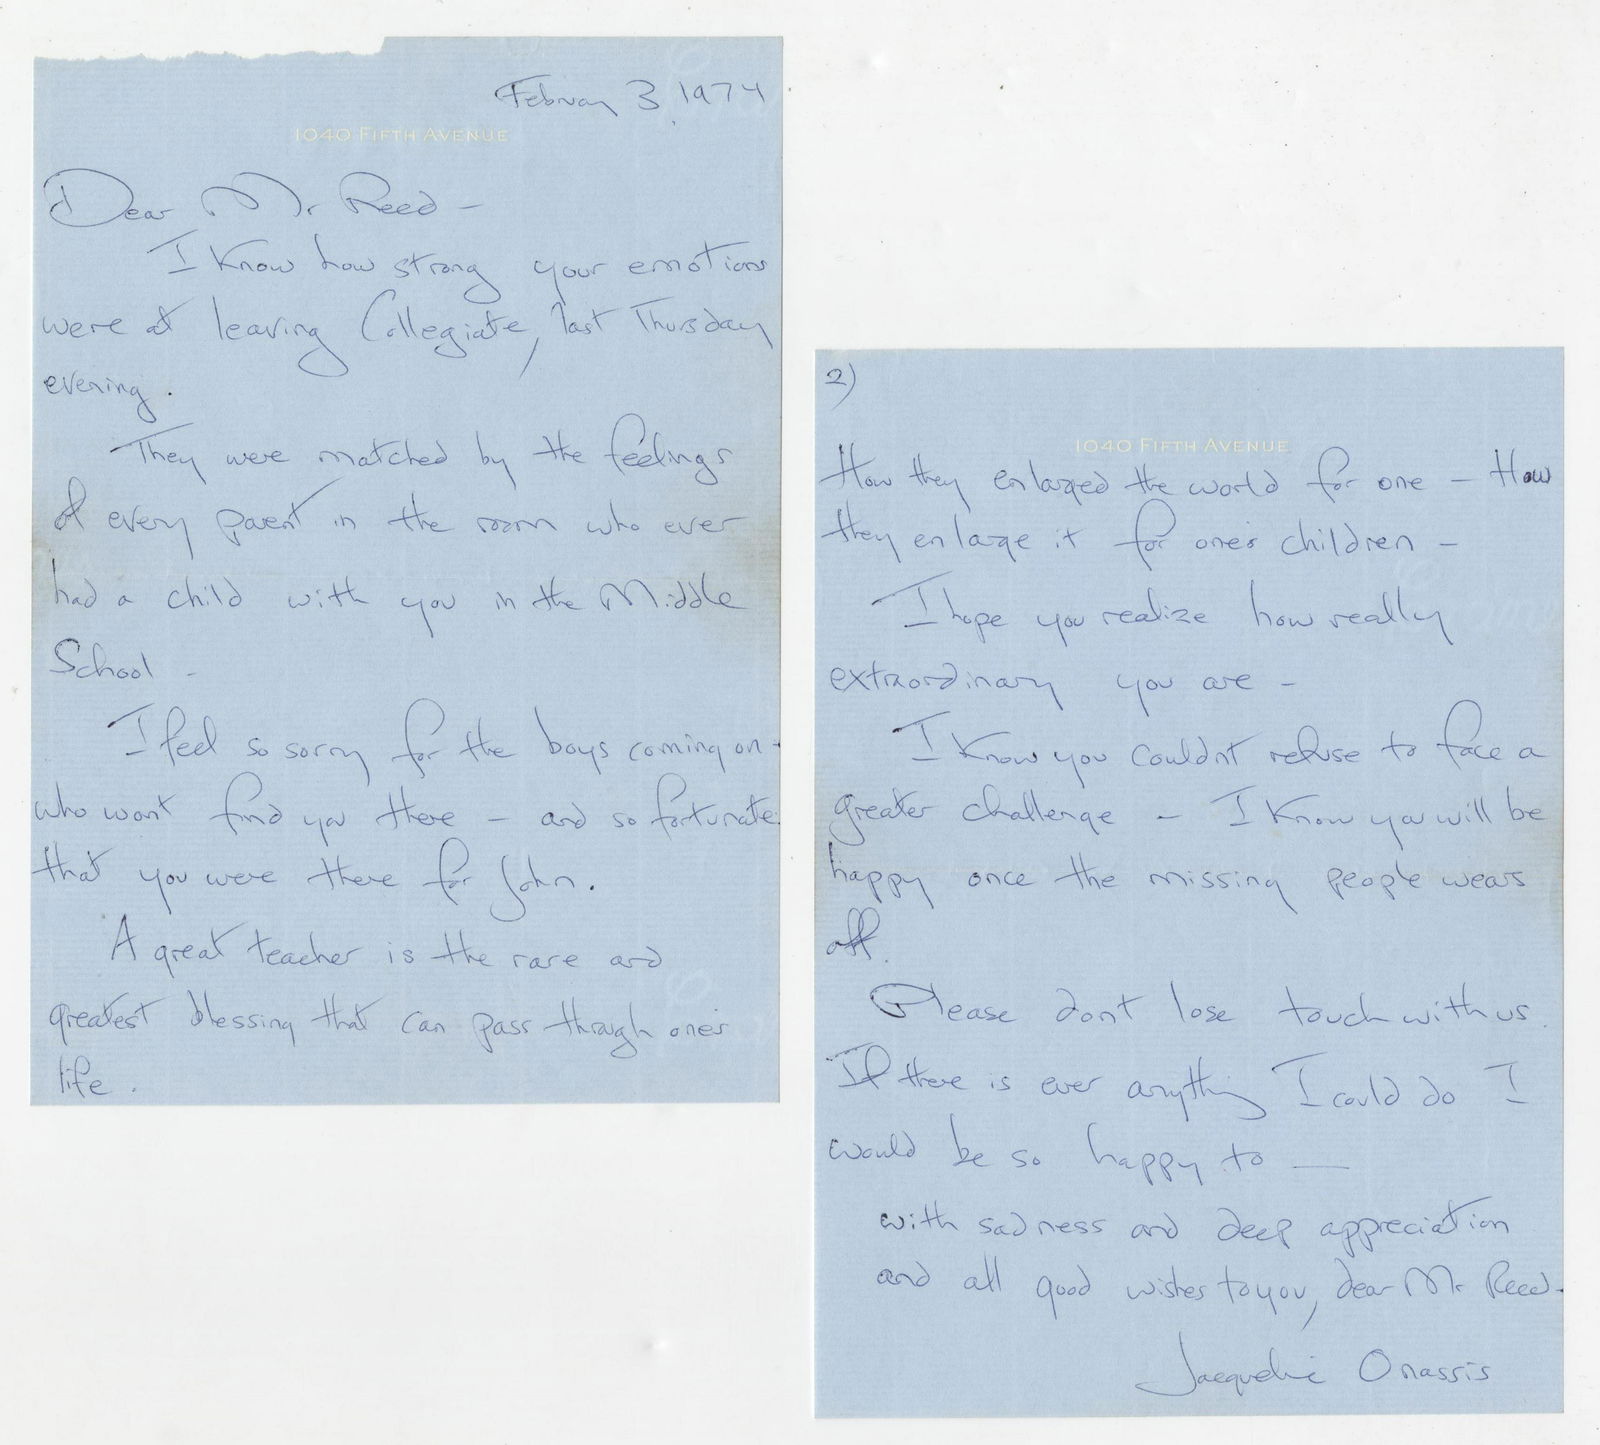 February 3, 1974
1040 FIFTH AVENUE
Dear Mr Reed –
I know how strong your emotions
were at leaving Collegiate, last Thursday
evening.
They were matched by the feelings
of every parent in the room who ever
had a child with you in the Middle
School –
I feel so sorry for the boys coming on –
who wont find you there – and so fortunate
that you were there for John.
A great teacher is the rare and
greatest blessing that can pass through one's
life.
2)
1040 FIFTH AVENUE
How they enlarged the world for one – How
they enlarge it for one's children –
I hope you realize how really
extraordinary you are –
I know you couldnt refuse to face a
greater challenge – I know you will be
happy once the missing people wears
off.
Please dont lose touch with us.
If there is ever anything I could do I
would be so happy to —
with sadness and deep appreciation
and all good wishes to you, dear Mr Reed –
Jacqueline Onassis